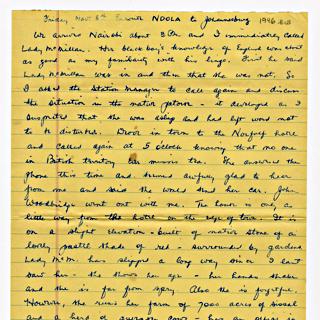 Friday Nov. 8th Enroute NDOLA to Johannesburg 1946
We arrived Nairobi about 3 PM and I immediately called
Lady McMillan. Her black boy's knowledge of England was about
as good as my familiarity with his lingo. First he said
Lady McMillan was in and then that she was not. So
I asked the Station Manager to call again and discuss
the situation in the native patois - it developed as I
suspected that she was asleep and had left word not
to be disturbed. Drove in town to the Norfolk hotel
and called again at 5 o'clock knowing that no one
in British territory ever misses tea. She answered the
phone this time and seemed awfully glad to hear
from me and said she would send her car. John
Woodbridge went out with me. The house is only a
little way from the hotel on the edge of town. It is
on a slight elevation - built of native stone of a
lovely pastel shade of red - surrounded by gardens
Lady McM. has slipped a long way since I last
saw her - she shows her age - her hands shake
and she is far from spry. Also she is forgetful.
However, she runs her farm of 700 acres of sissal
and a herd of cows - has an